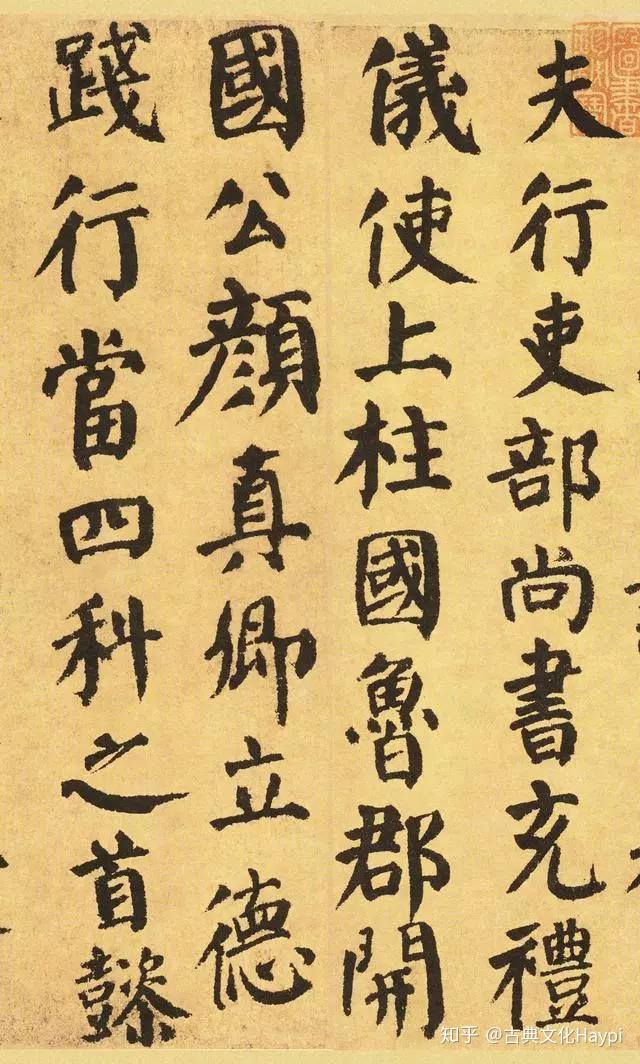 夫行吏部尚書充禮
儀使上柱國魯郡開
國公顏真卿立德
踐行當四科之首懿
知乎 @古典文化Haypi